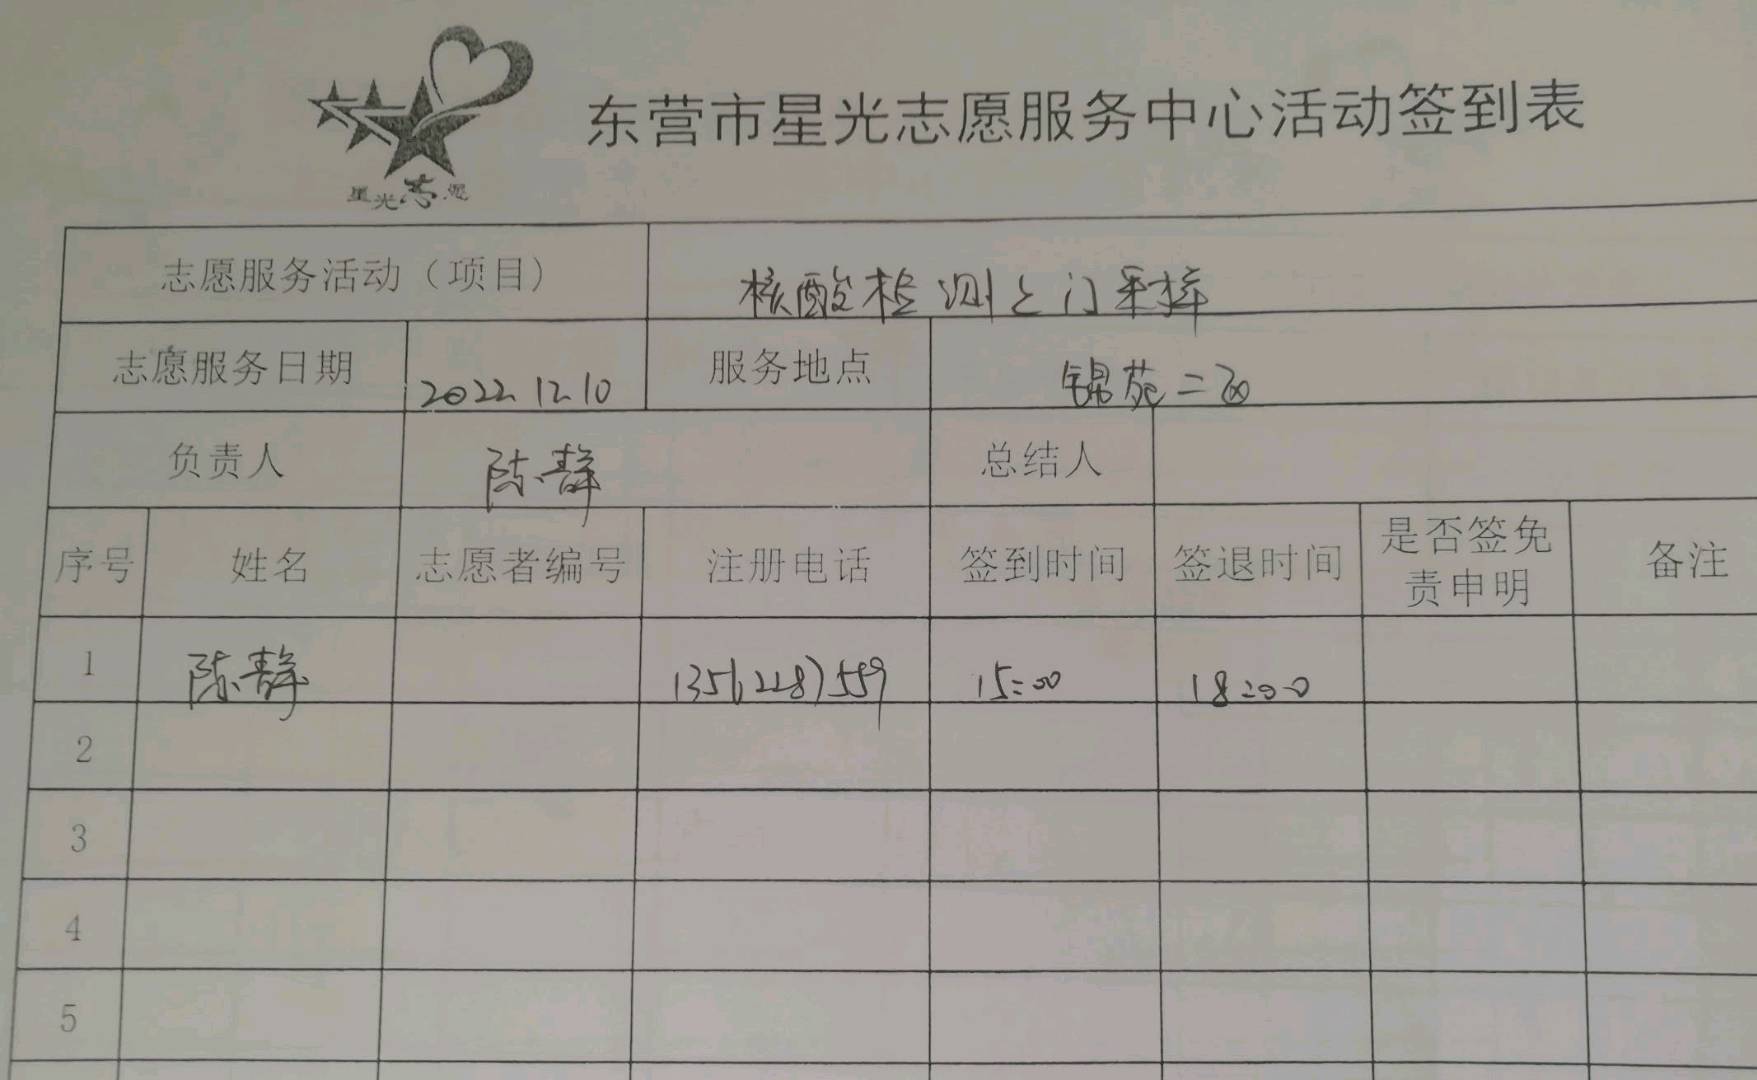 东营市星光志愿服务中心活动签到表
星光志愿
志愿服务活动（项目） 核酸检测上门采样
志愿服务日期 2022.12.10 服务地点 锦苑二区
负责人 陈静 总结人
序号 姓名 志愿者编号 注册电话 签到时间 签退时间 是否签免责申明 备注
1 陈静 13561228559 15:00 18:00
2
3
4
5